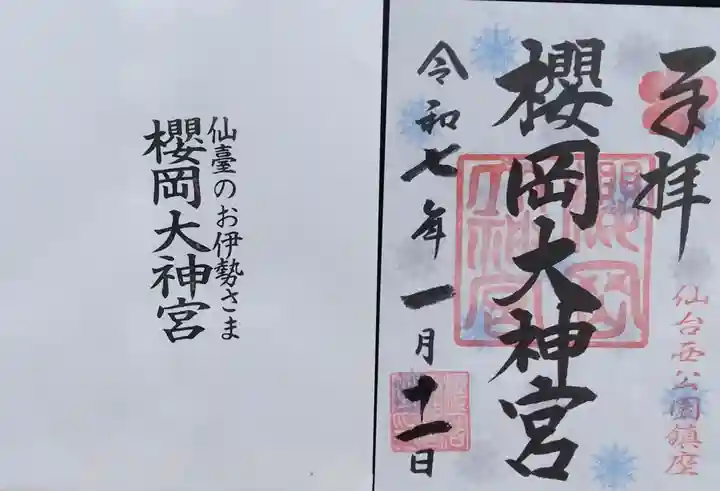 奉拝
櫻岡大神宮
令和七年一月十一日
仙台西公園鎮座
櫻岡
大神宮
仙臺のお伊勢さま
櫻岡大神宮